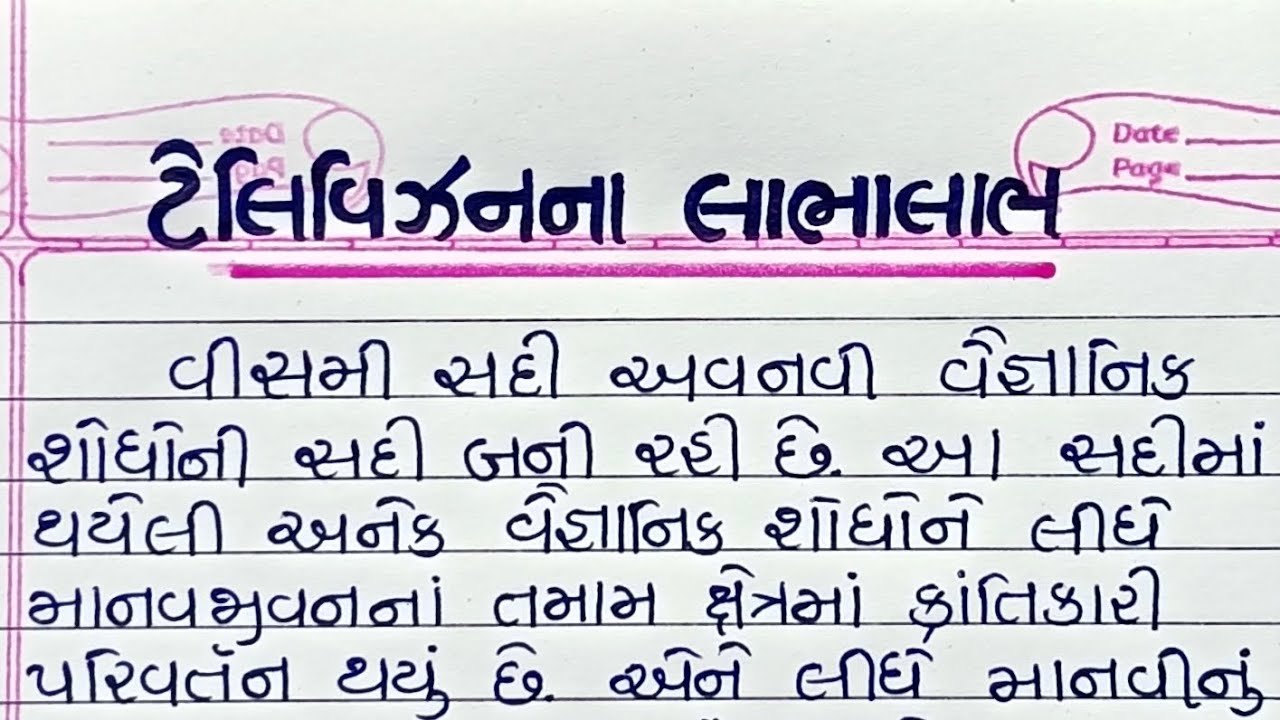 Date
Page
ટેલિવિઝનના લાભાલાભ
વીસમી સદી અવનવી વૈજ્ઞાનિક
શોધોની સદી બની રહી છે. આ સદીમાં
થયેલી અનેક વૈજ્ઞાનિક શોધોને લીધે
માનવજીવનનાં તમામ ક્ષેત્રમાં ક્રાંતિકારી
પરિવર્તન થયું છે. એને લીધે માનવીનું